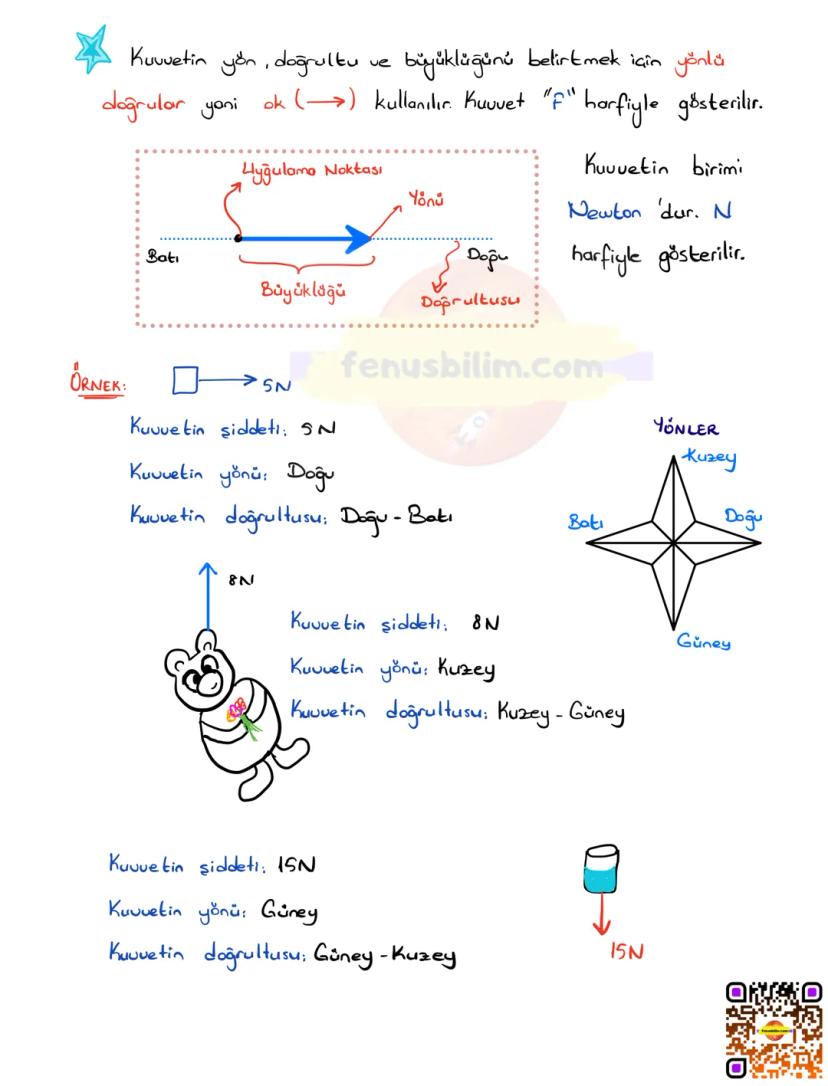 Kuvvetin yön, doğrultu ve büyüklüğünü belirtmek için yönlü
doğrular yani ok (→) kullanılır. Kuvvet "F" harfiyle gösterilir.
Uyğulama Noktası
Yönü
Batı
Doğu
Büyüklüğü
Doğrultusu
Kuvvetin birimi
Newton 'dur. N
harfiyle gösterilir.
fenusbilim.com
ÖRNEK:
5N
Kuvvetin şiddeti: 5N
Kuvvetin yönü: Doğu
Kuvvetin doğrultusu: Doğu - Batı
YÖNLER
Kuzey
Batı
Doğu
Güney
8N
Kuvvetin şiddeti: 8N
Kuvvetin yönü: Kuzey
Kuvvetin doğrultusu: Kuzey - Güney
Kuvvetin şiddeti: 15N
Kuvvetin yönü: Güney
Kuvvetin doğrultusu: Güney - Kuzey
15N
fenusbilim.com